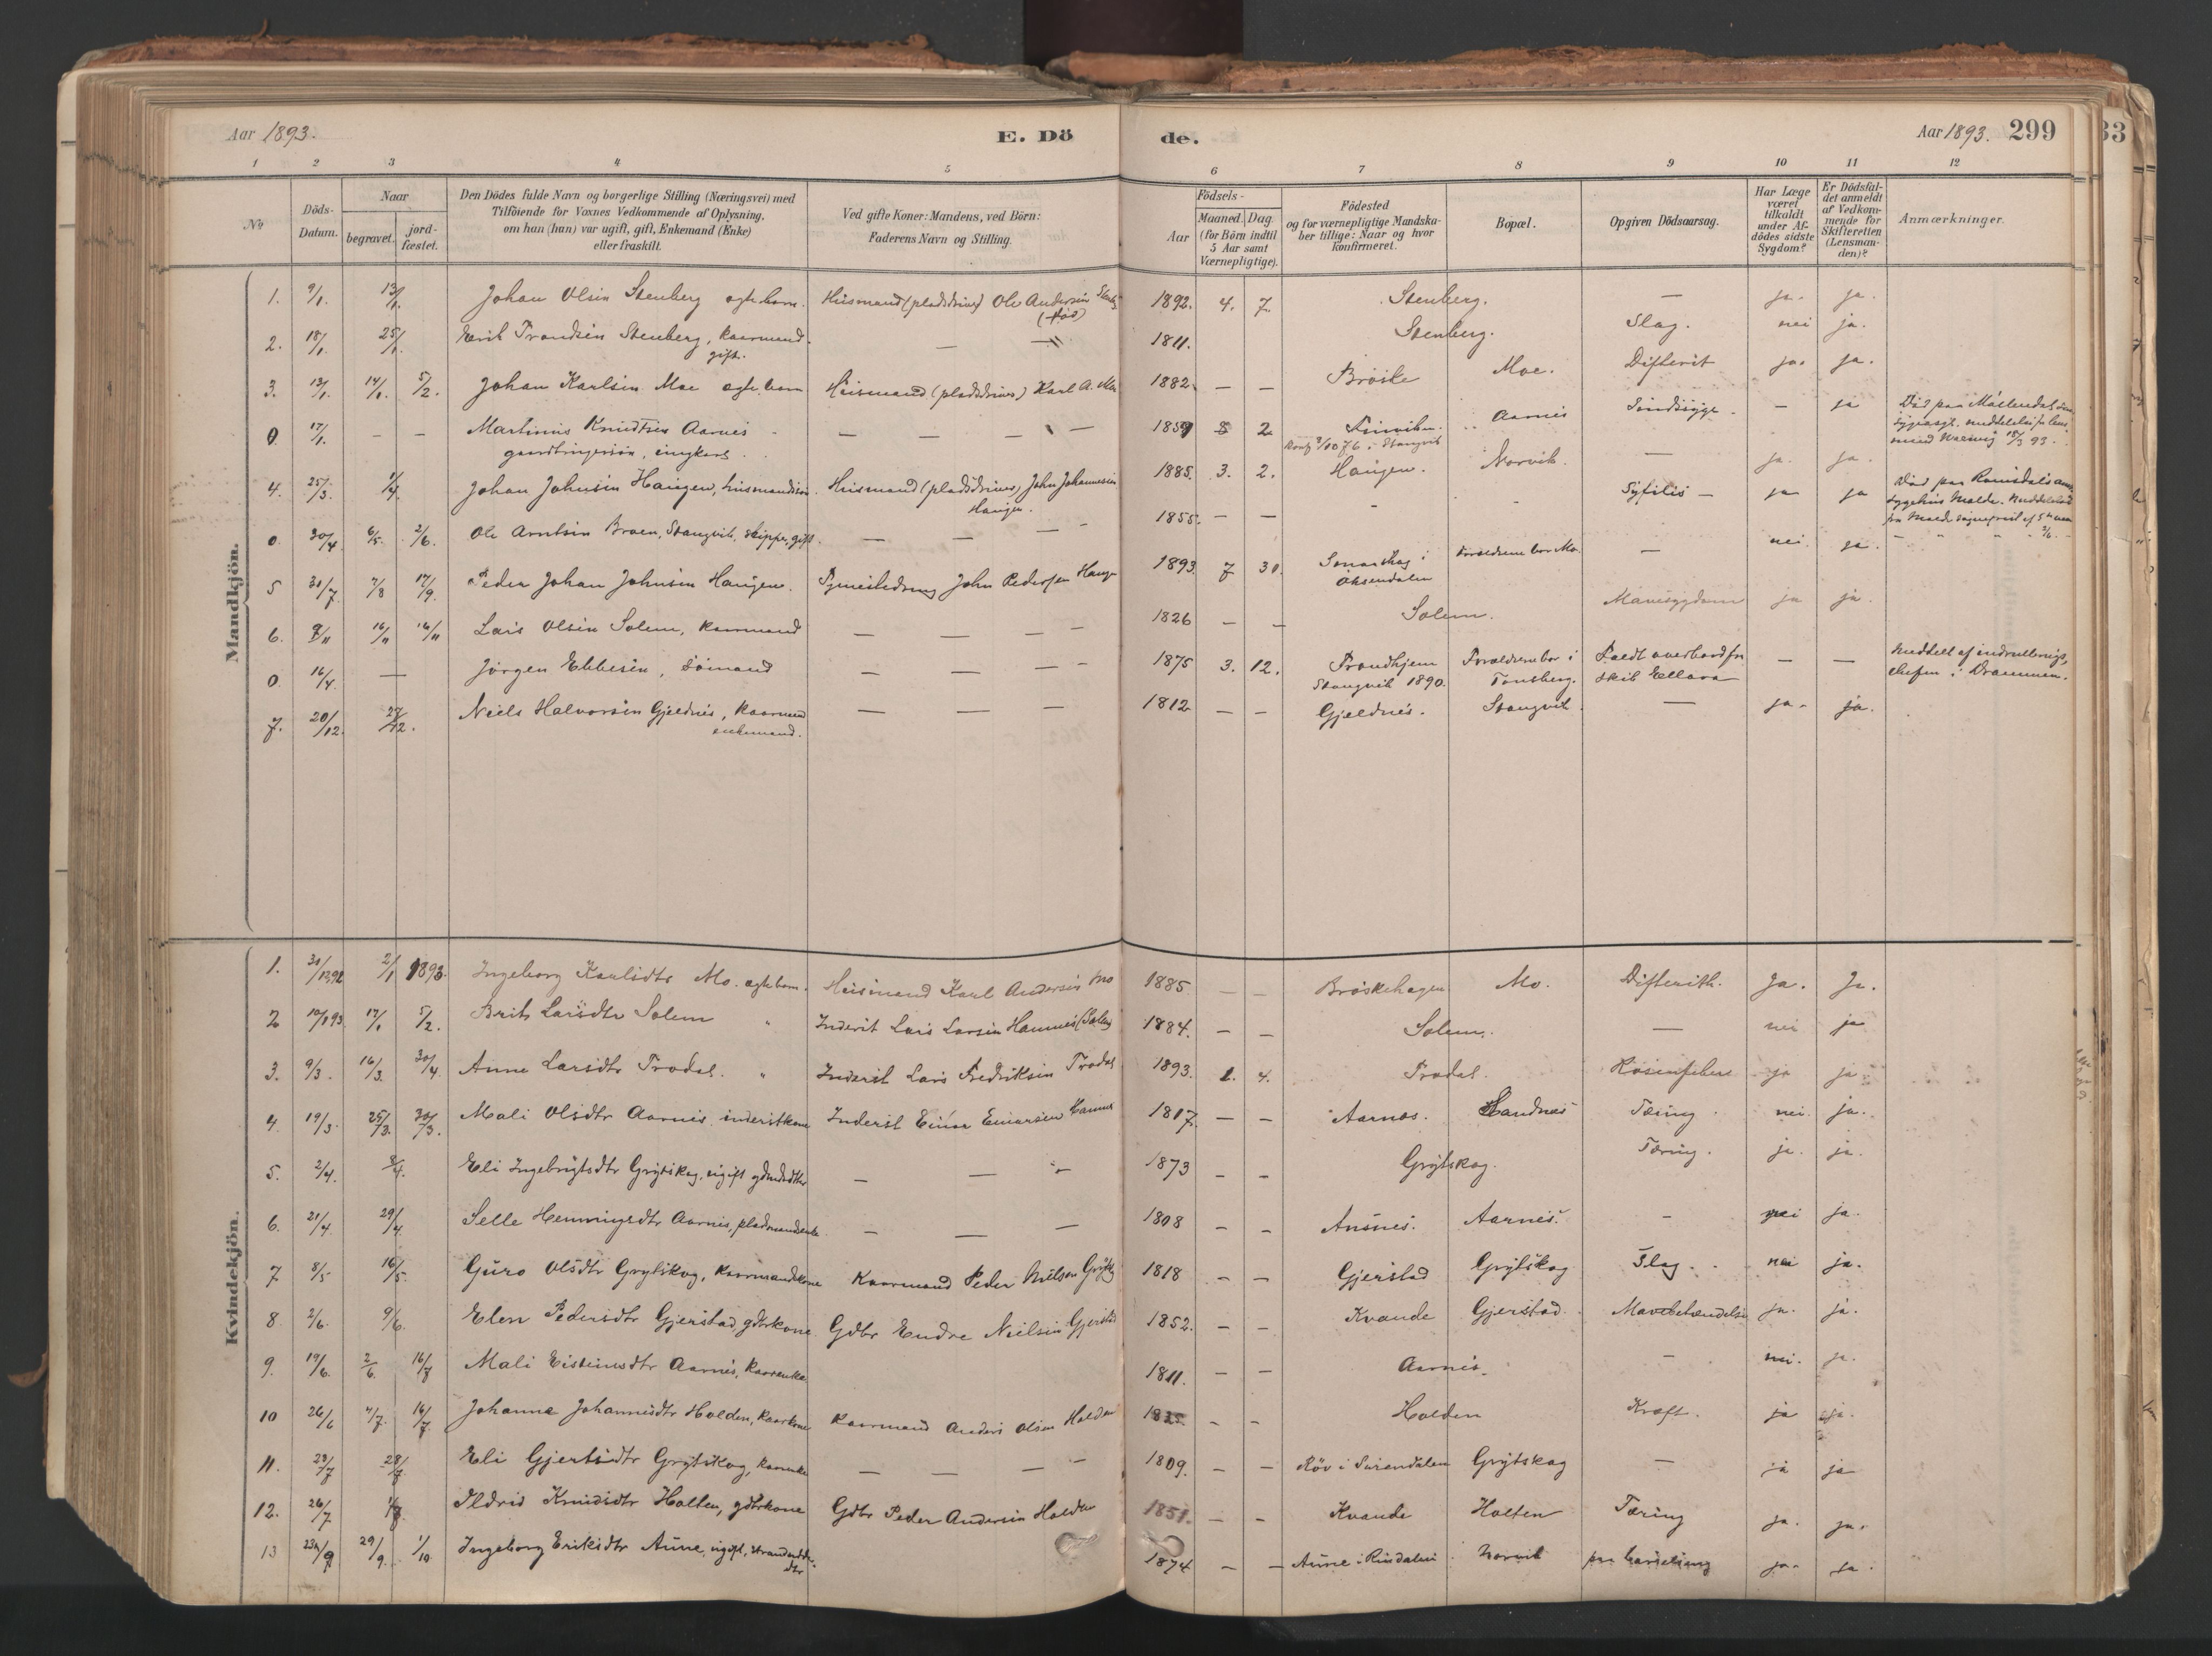 Aar 1893.
E. Dö
de.
Aar 1893.
299
33
1 2 3 4 5 6 7 8 9 10 11 12
No
Döds-Datum.
Naar
begravet.
jord-fæstet.
Den Dödes fulde Navn og borgerlige Stilling (Næringsvei) med
Tilföiende for Voxnes Vedkommende af Oplysning,
om han (hun) var ugift, gift, Enkemand (Enke)
eller fraskilt.
Ved gifte Koner: Mandens, ved Börn:
Faderens Navn og Stilling.
Födsels-
Aar
Maaned. Dag.
(for Börn indtil
5 Aar samt
Værnepligtige).
Födested
og for værnepligtige Mandska-
ber tillige: Naar og hvor
konfirmeret.
Bopæl.
Opgiven Dödsaarsag.
Har Læge
været
tilkaldt
under Af-
dödes sidste
Sygdom?
Er Dödsfal-
det anmeldt
af Vedkom-
mende for
Skifteretten
(Lensman-
den)?
Anmærkninger.
Mandkjön.
1. 9/1. 13/1. Johan Olsen Stenberg ægte barn. Husmand (pladsdriver) Ole Andersen 1892. 4. 7. Stenberg. — ja. ja.
2. 18/1. 25/1. Erik Trondsen Stenberg, kaarmand. — 1811. Stenberg. Slag. nei ja.
gift.
3. 13/1. 14/1. 5/2. Johan Karlsen Moe ægte barn Husmand (pladsdriver) Karl A. Moe 1882. — — Brøske Moe. Difterit ja. ja.
0. 17/1. — — Martinus Knudtsen Aarnes — — — — 1859 2 Aarnes Sindssyge. — ja
gaardbrugersøn, ungkarl.
4. 25/3. 1/4. Johan Johnsen Haugen, husmandssøn. Husmand (pladsdriver) John Johannesen 1885. 3. 2. Haugen. Norvik. — ja. ja.
Haugen.
0. 30/4. 6/5. 2/6. Ole Arntsen Broen, Stangvik, skipper, gift. — — — 1855. — — Syfilis — ja ja
5 31/7. 7/8 17/9. Peder Johan Johnsen Haugen. John Pedersen Haugen 1893. 7 30. i — nei. ja.
Øksendalen
6. 16/11 16/11 Lars Olsen Solem, kaarmand — — — 1826 — — Solem. Mavesygdom ja ja.
0. 16/4. — Jørgen Ebbesen, sømand — — — 1875 3. 12. Trondhjem Forældrene bor i Faldt overbord fra — — Meddelt af indrullerings
Stangvik 1890. Tønsberg. skib Ellara chefen i Drammen.
7. 20/12. 27/12. Niels Halvorsen Gjeldnes, kaarmand — — — 1812 — — Gjeldnes. Stangvik. — ja. ja.
enkemand.
Kvindekjön.
1. 31/12 92 2/1 1893. Ingeborg Karlsdtr Mo. ægte barn. Husmand Karl Andersen Mo 1885 — — Brøskehagen Mo. Difterith. Ja. Ja.
2 10/1 93 17/1 5/2. Brit Larsdtr Solem " Inderst Lars Larsen Hamnes (Solem) 1884. — — Solem. — nei ja
3. 9/3. 16/3. 30/4. Anne Larsdtr Trodal. " Inderst Lars Fredriksen Trodal 1893. 1. 4. Trodal. ja ja.
4. 19/3. 25/3. 30/3. Mali Olsdtr Aarnes. inderstkone Inderst Einar Einarsen 1817. — — Aarnes. Sandnes Tæring. nei. ja.
5. 2/4. 8/4. Eli Ingebrigtsdtr Grytskog, ugift — — 1873 — — Grytskog. Tæring. ja. ja.
6. 21/4. 29/4. Selle Henningsdtr Aarnes, — — 1808 — — Aarnes. — nei ja.
7. 8/5. 16/5. Guro Olsdtr Grytskog, kaarmandskone Kaarmand Peder Nielsen 1818 — — Gjerstad Grytskog Slag. nei ja.
8. 2/6. 9/6. Elen Pedersdtr Gjerstad, gdbrkone Gdbr Endre Nielsen Gjerstad 1852. — — Kvande Gjerstad. Mavebetændelse ja. ja.
9. 19/6. 2/6. 16/7 Mali Eistensdtr Aarnes, kaarenke 1811. — — Aarnes. — nei. ja.
10 26/6 4/7. 16/7. Johanna Johannesdtr Holden, kaarkone Kaarmand Anders Olsen Holden — — Holden Kræft. ja ja.
11. 23/7 28/7 Eli Gjertsdtr Grytskog, kaarenke — — — 1809. — — Røv i Surendalen Grytskog — ja ja
12. 26/7 Ildrid Knudsdtr Holten, gdbrkone Gdbr Peder Andersen Holden 1851. — — Kvande Holten Tæring ja. ja.
13 23/9 29/9. 1/10 Ingeborg Eriksdtr Aune, ugift, 1874 — — Aune i Rindalen Norvik paa barselseng ja. ja.